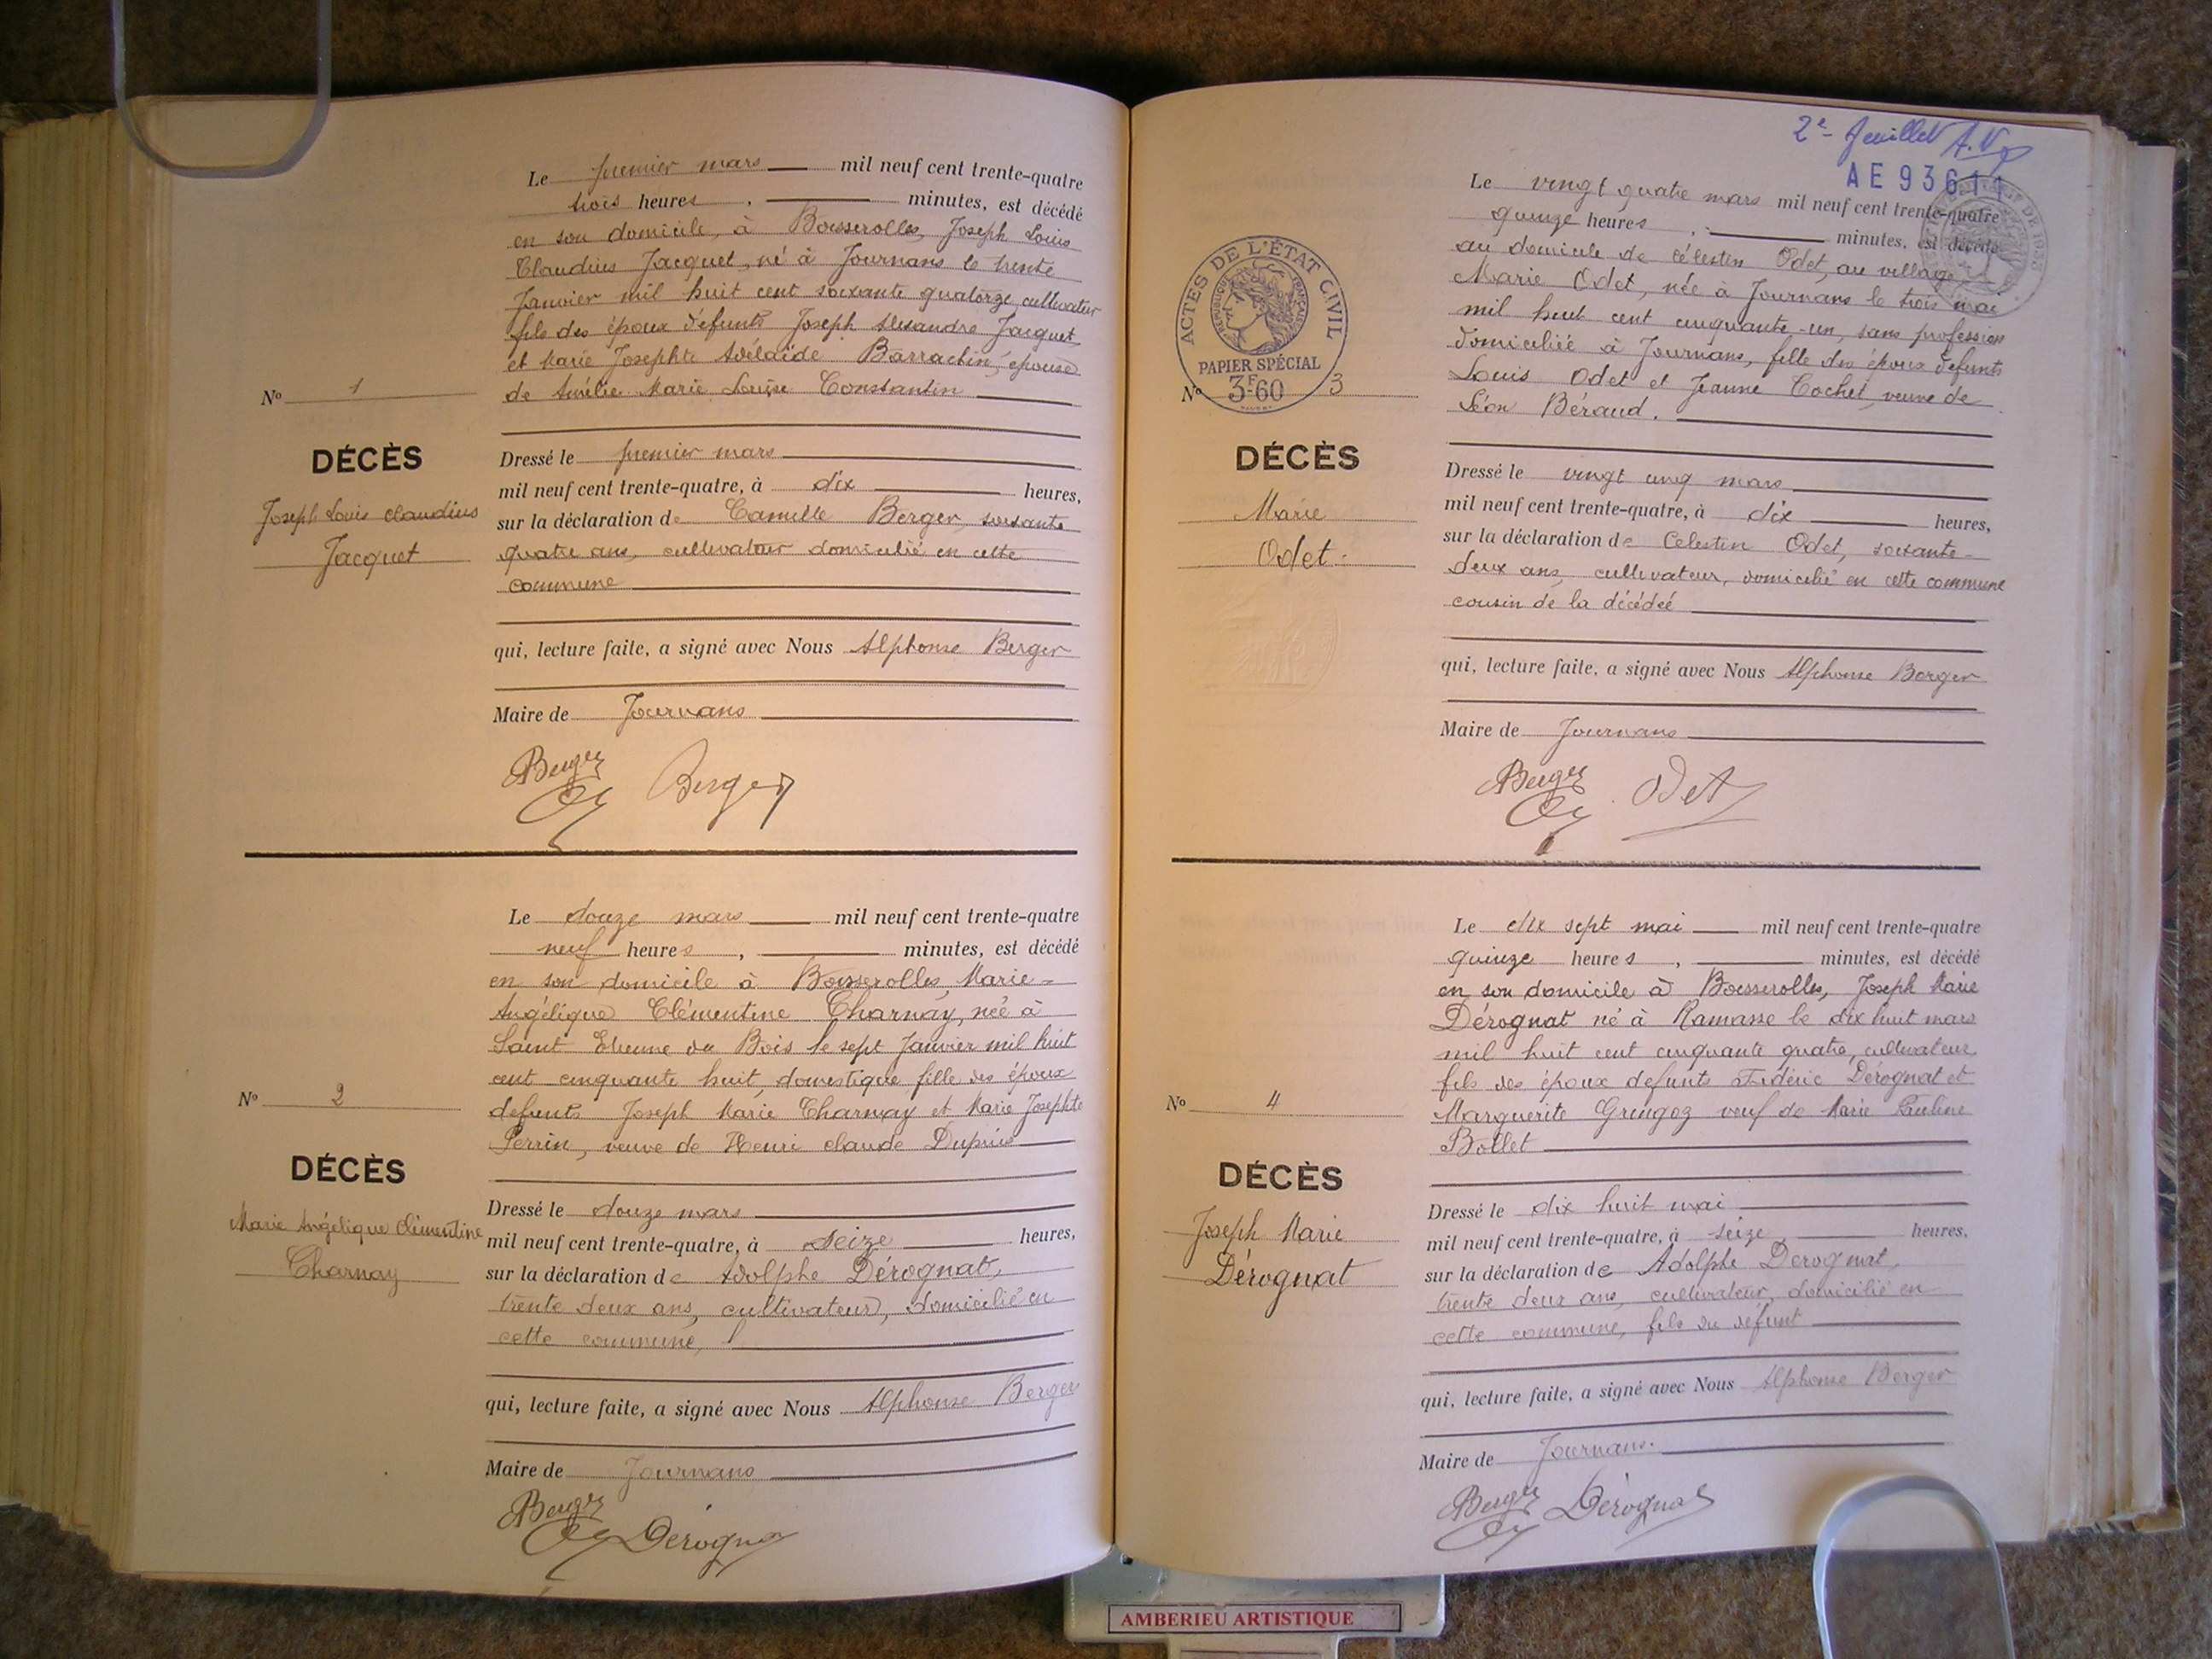 Le premier mars mil neuf cent trente-quatre
trois heures , minutes, est décédé
en son domicile, à Boisserolles, Joseph Louis
Claudius Jacquet, né à Journans le trente
Janvier mil huit cent soixante quatorze, cultivateur
fils des époux défunts Joseph Alexandre Jacquet
et Marie Josephte Adélaïde Barrachin, épouse
de Aurélie Marie Louise Constantin
No 1
DÉCÈS
Joseph Louis Claudius
Jacquet
Dressé le premier mars
mil neuf cent trente-quatre, à dix heures,
sur la déclaration de Camille Berger, soixante
quatre ans, cultivateur domicilié en cette
commune
qui, lecture faite, a signé avec Nous Alphonse Berger
Maire de Journans
Berger Berger
Le douze mars mil neuf cent trente-quatre
neuf heures , minutes, est décédé
en son domicile à Boisserolles, Marie-
Angélique Clémentine Charnay, née à
Saint Etienne du Bois le sept Janvier mil huit
cent cinquante huit, domestique fille des époux
defunts Joseph Marie Charnay et Marie Josephte
Perrin, veuve de Henri Claude
No 2
DÉCÈS
Marie Angélique Clémentine
Charnay
Dressé le douze mars
mil neuf cent trente-quatre, à seize heures,
sur la déclaration de Adolphe Dérognat,
trente deux ans, cultivateur, domicilié en
cette commune,
qui, lecture faite, a signé avec Nous Alphonse Berger
Maire de Journans
Berger Dérognat
2e feuillet A.V.
AE 93611
Le vingt quatre mars mil neuf cent trente-quatre
quinze heures , minutes, est décédé
au domicile de Célestin Odet, au village
Marie Odet, née à Journans le trois mai
mil huit cent cinquante-un, sans profession
domiciliée à Journans, fille des époux défunts
Louis Odet et Jeanne Cochet, veuve de
Léon Béraud.
ACTES DE L'ÉTAT CIVIL
RÉPUBLIQUE FRANÇAISE
PAPIER SPÉCIAL
3F-60
No 3
DÉCÈS
Marie
Odet
Dressé le vingt cinq mars
mil neuf cent trente-quatre, à dix heures,
sur la déclaration de Celestin Odet, soixante-
deux ans, cultivateur, domicilié en cette commune
cousin de la décédée
qui, lecture faite, a signé avec Nous Alphonse Berger
Maire de Journans
Berger Odet
Le dix sept mai mil neuf cent trente-quatre
quinze heures , minutes, est décédé
en son domicile à Boisserolles, Joseph Marie
Dérognat né à Ramasse le dix huit mars
mil huit cent cinquante quatre, cultivateur,
fils des époux defunts Frédéric Dérognat et
Marguerite Gringoz veuf de Marie Pauline
Bollet
No 4
DÉCÈS
Joseph Marie
Dérognat
Dressé le dix huit mai
mil neuf cent trente-quatre, à seize heures,
sur la déclaration de Adolphe Dérognat,
trente deux ans, cultivateur, domicilié en
cette commune, fils du défunt
qui, lecture faite, a signé avec Nous Alphonse Berger
Maire de Journans.
Berger Dérognat
AMBERIEU ARTISTIQUE